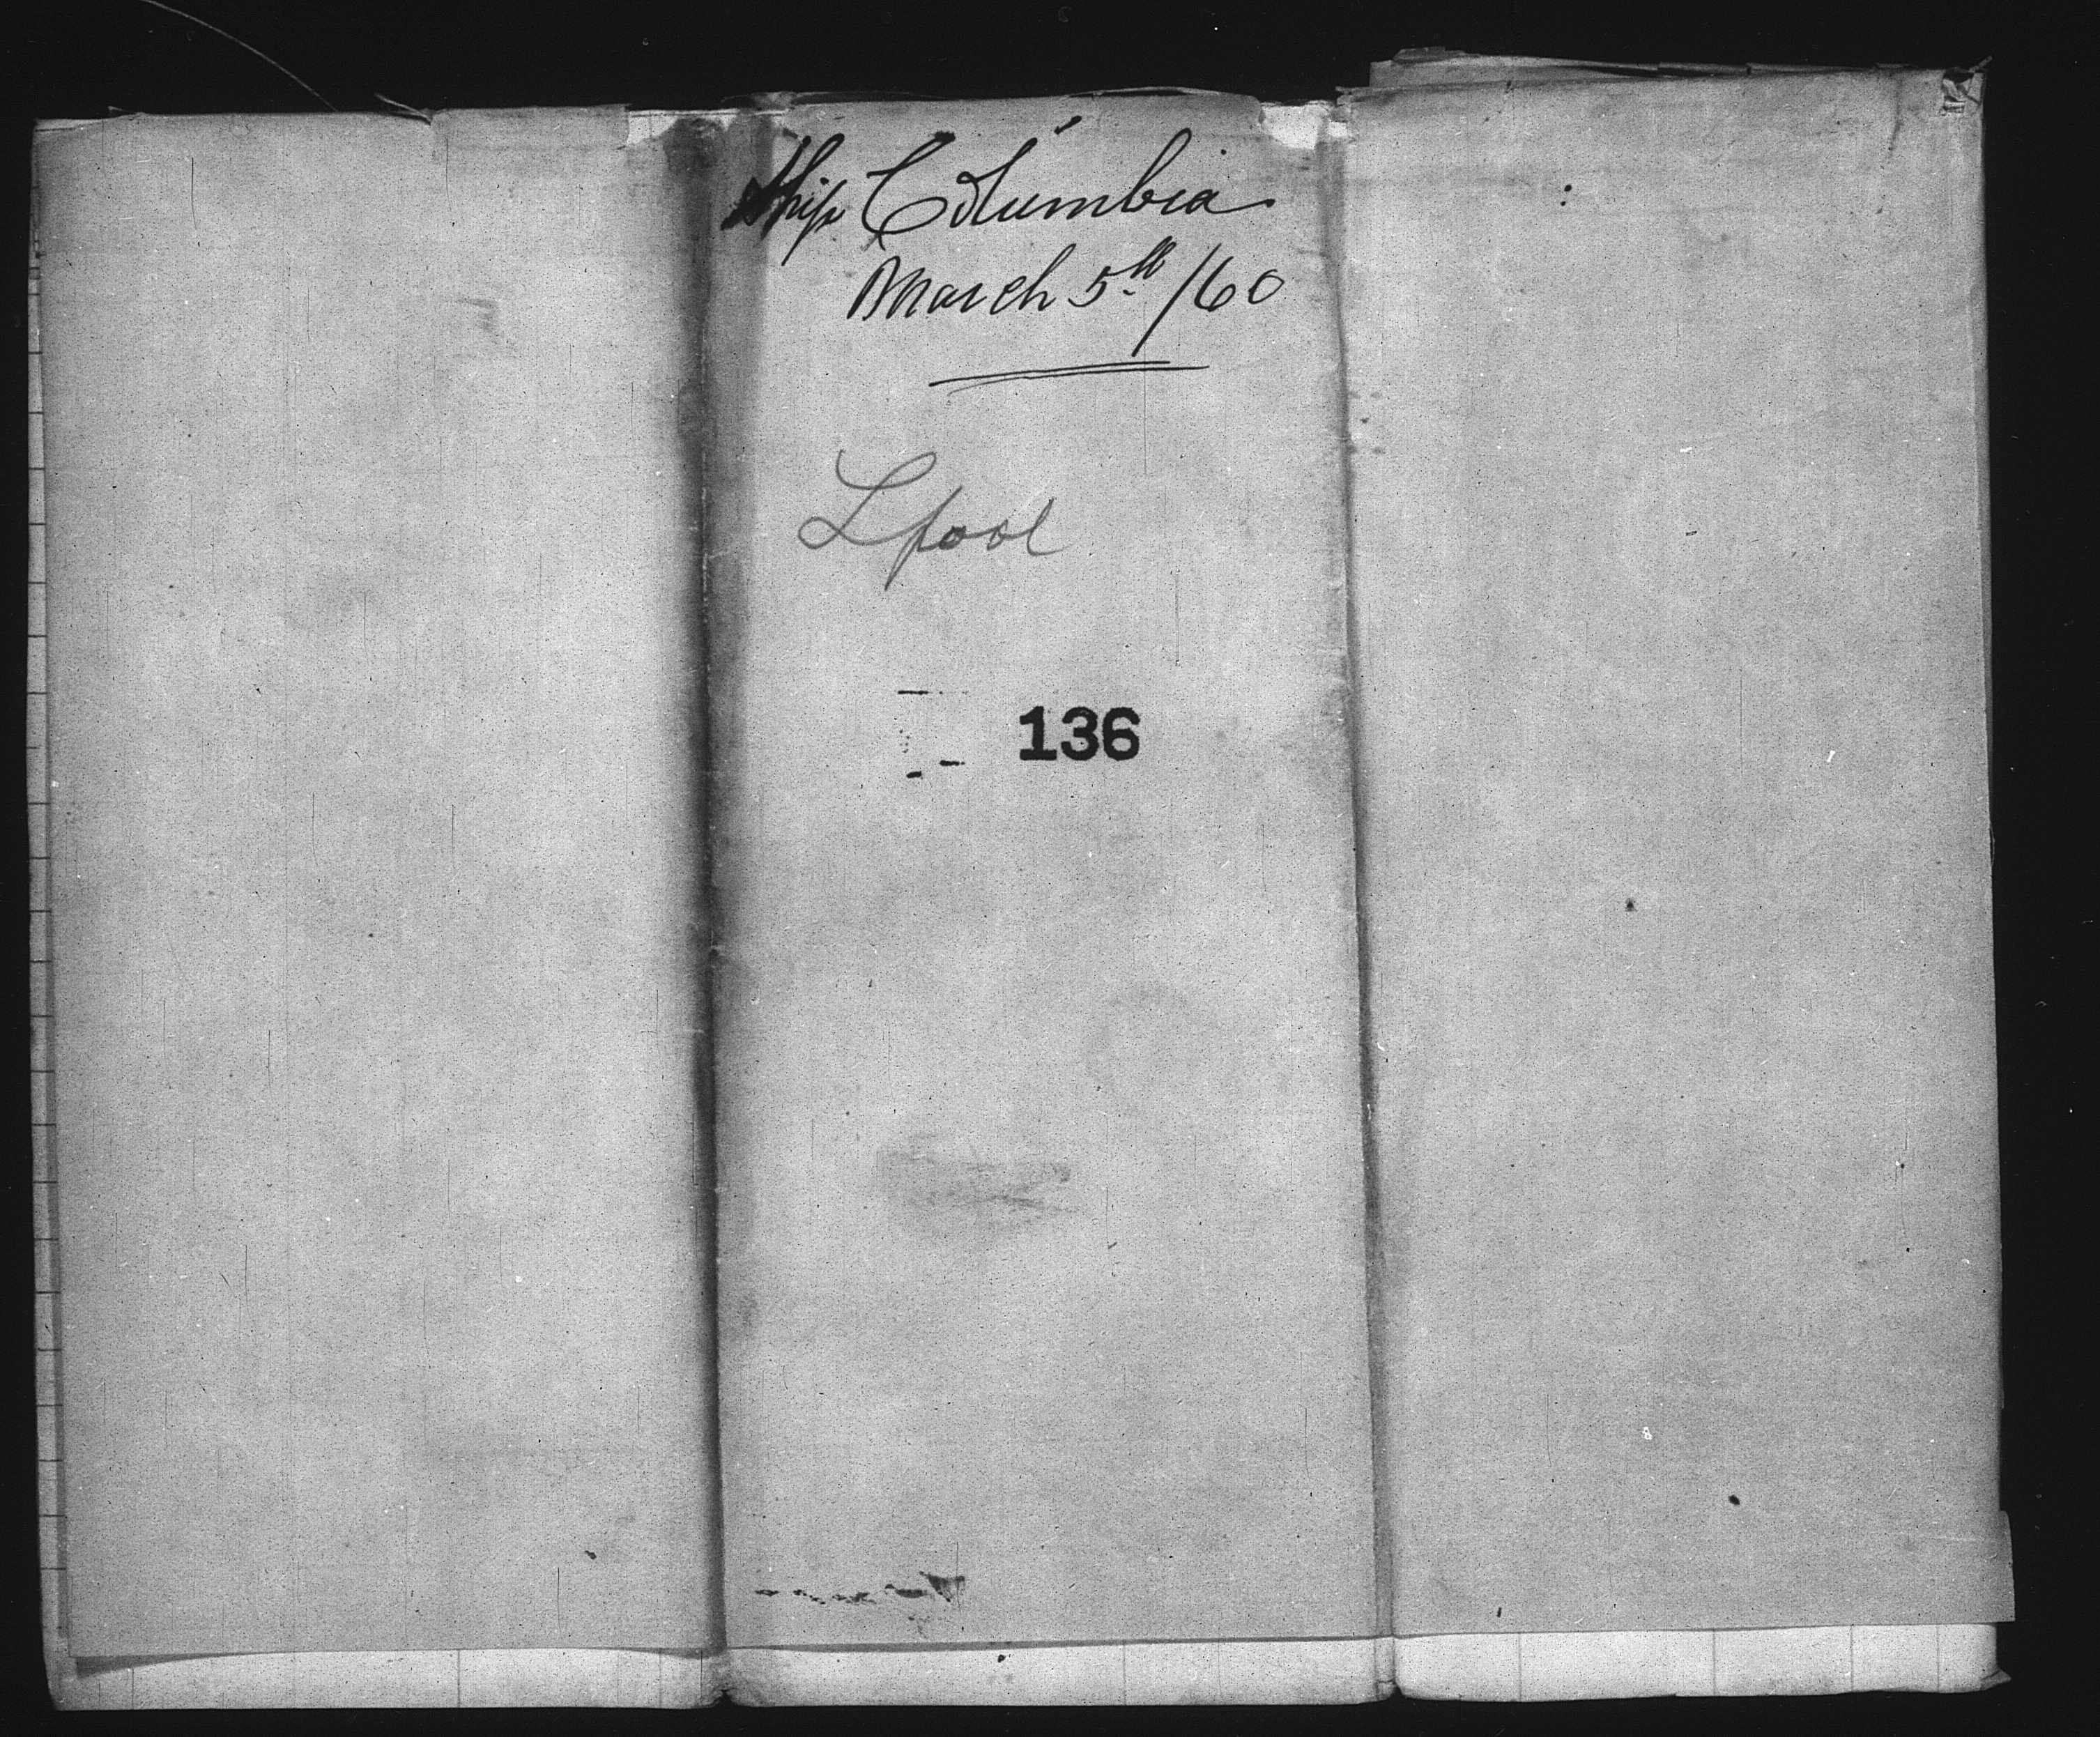 Ship Columbia
March 5th /60
Lpool
136